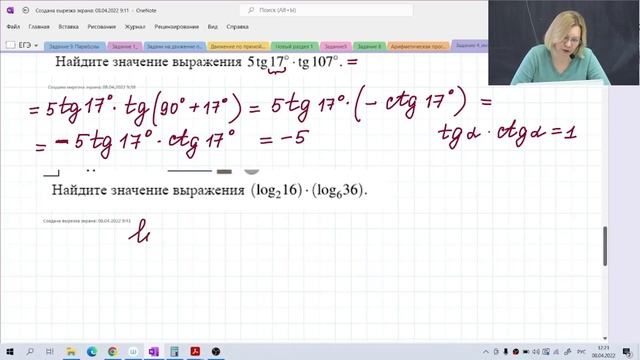 Создана вырезка экрана: 08.04.2022 9:11 - OneNote
Поиск (Alt+Ы)
Файл Главная Вставка Рисование Журнал Рецензирование Вид Справка
ЕГЭ Задание 9. Параболы Задание 1_ Задачи на движение п Движение по прямой... Новый раздел 1 Задание9 Задание 8 Арифметическая прог Задание 4_и
Найдите значение выражения 5 tg 17° · tg 107°. =
= 5 tg 17° · tg (90° + 17°) = 5 tg 17° · (- ctg 17°) =
= - 5 tg 17° · ctg 17° = -5 tg α · ctg α = 1
Найдите значение выражения (log₂16) · (log₆36).
Создана вырезка экрана: 08.04.2022 9:13
РУС
17:21
08.04.2022